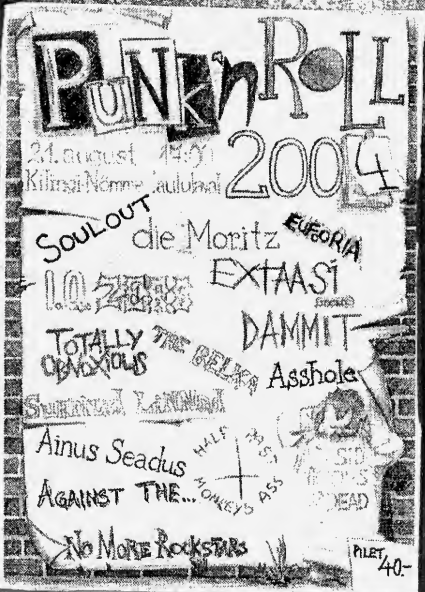 PUNK'n ROLL
2004
21. august 14:00
Kilingi-Nõmme laululaval
SOULOUT
die Moritz
EUFOORIA
I.Q. ZERO
EXTAASI
DAMMIT
TOTALLY
OBNOXIOUS
THE BELKA
Asshole
Surnud LiNNud
Ainus Seadus
HALF PAST
MONKEY'S ASS
SID
IS
DEAD
AGAINST THE...
No MoRE RocKSTaRs
PILET
40.-